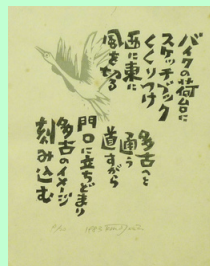 バイクの荷台に
スケッチブック
くくりつけ
西に東に
風を切る
多古へと
通う
道すがら
門口に立ちどまり
多古のイメージ
刻み込む
1983